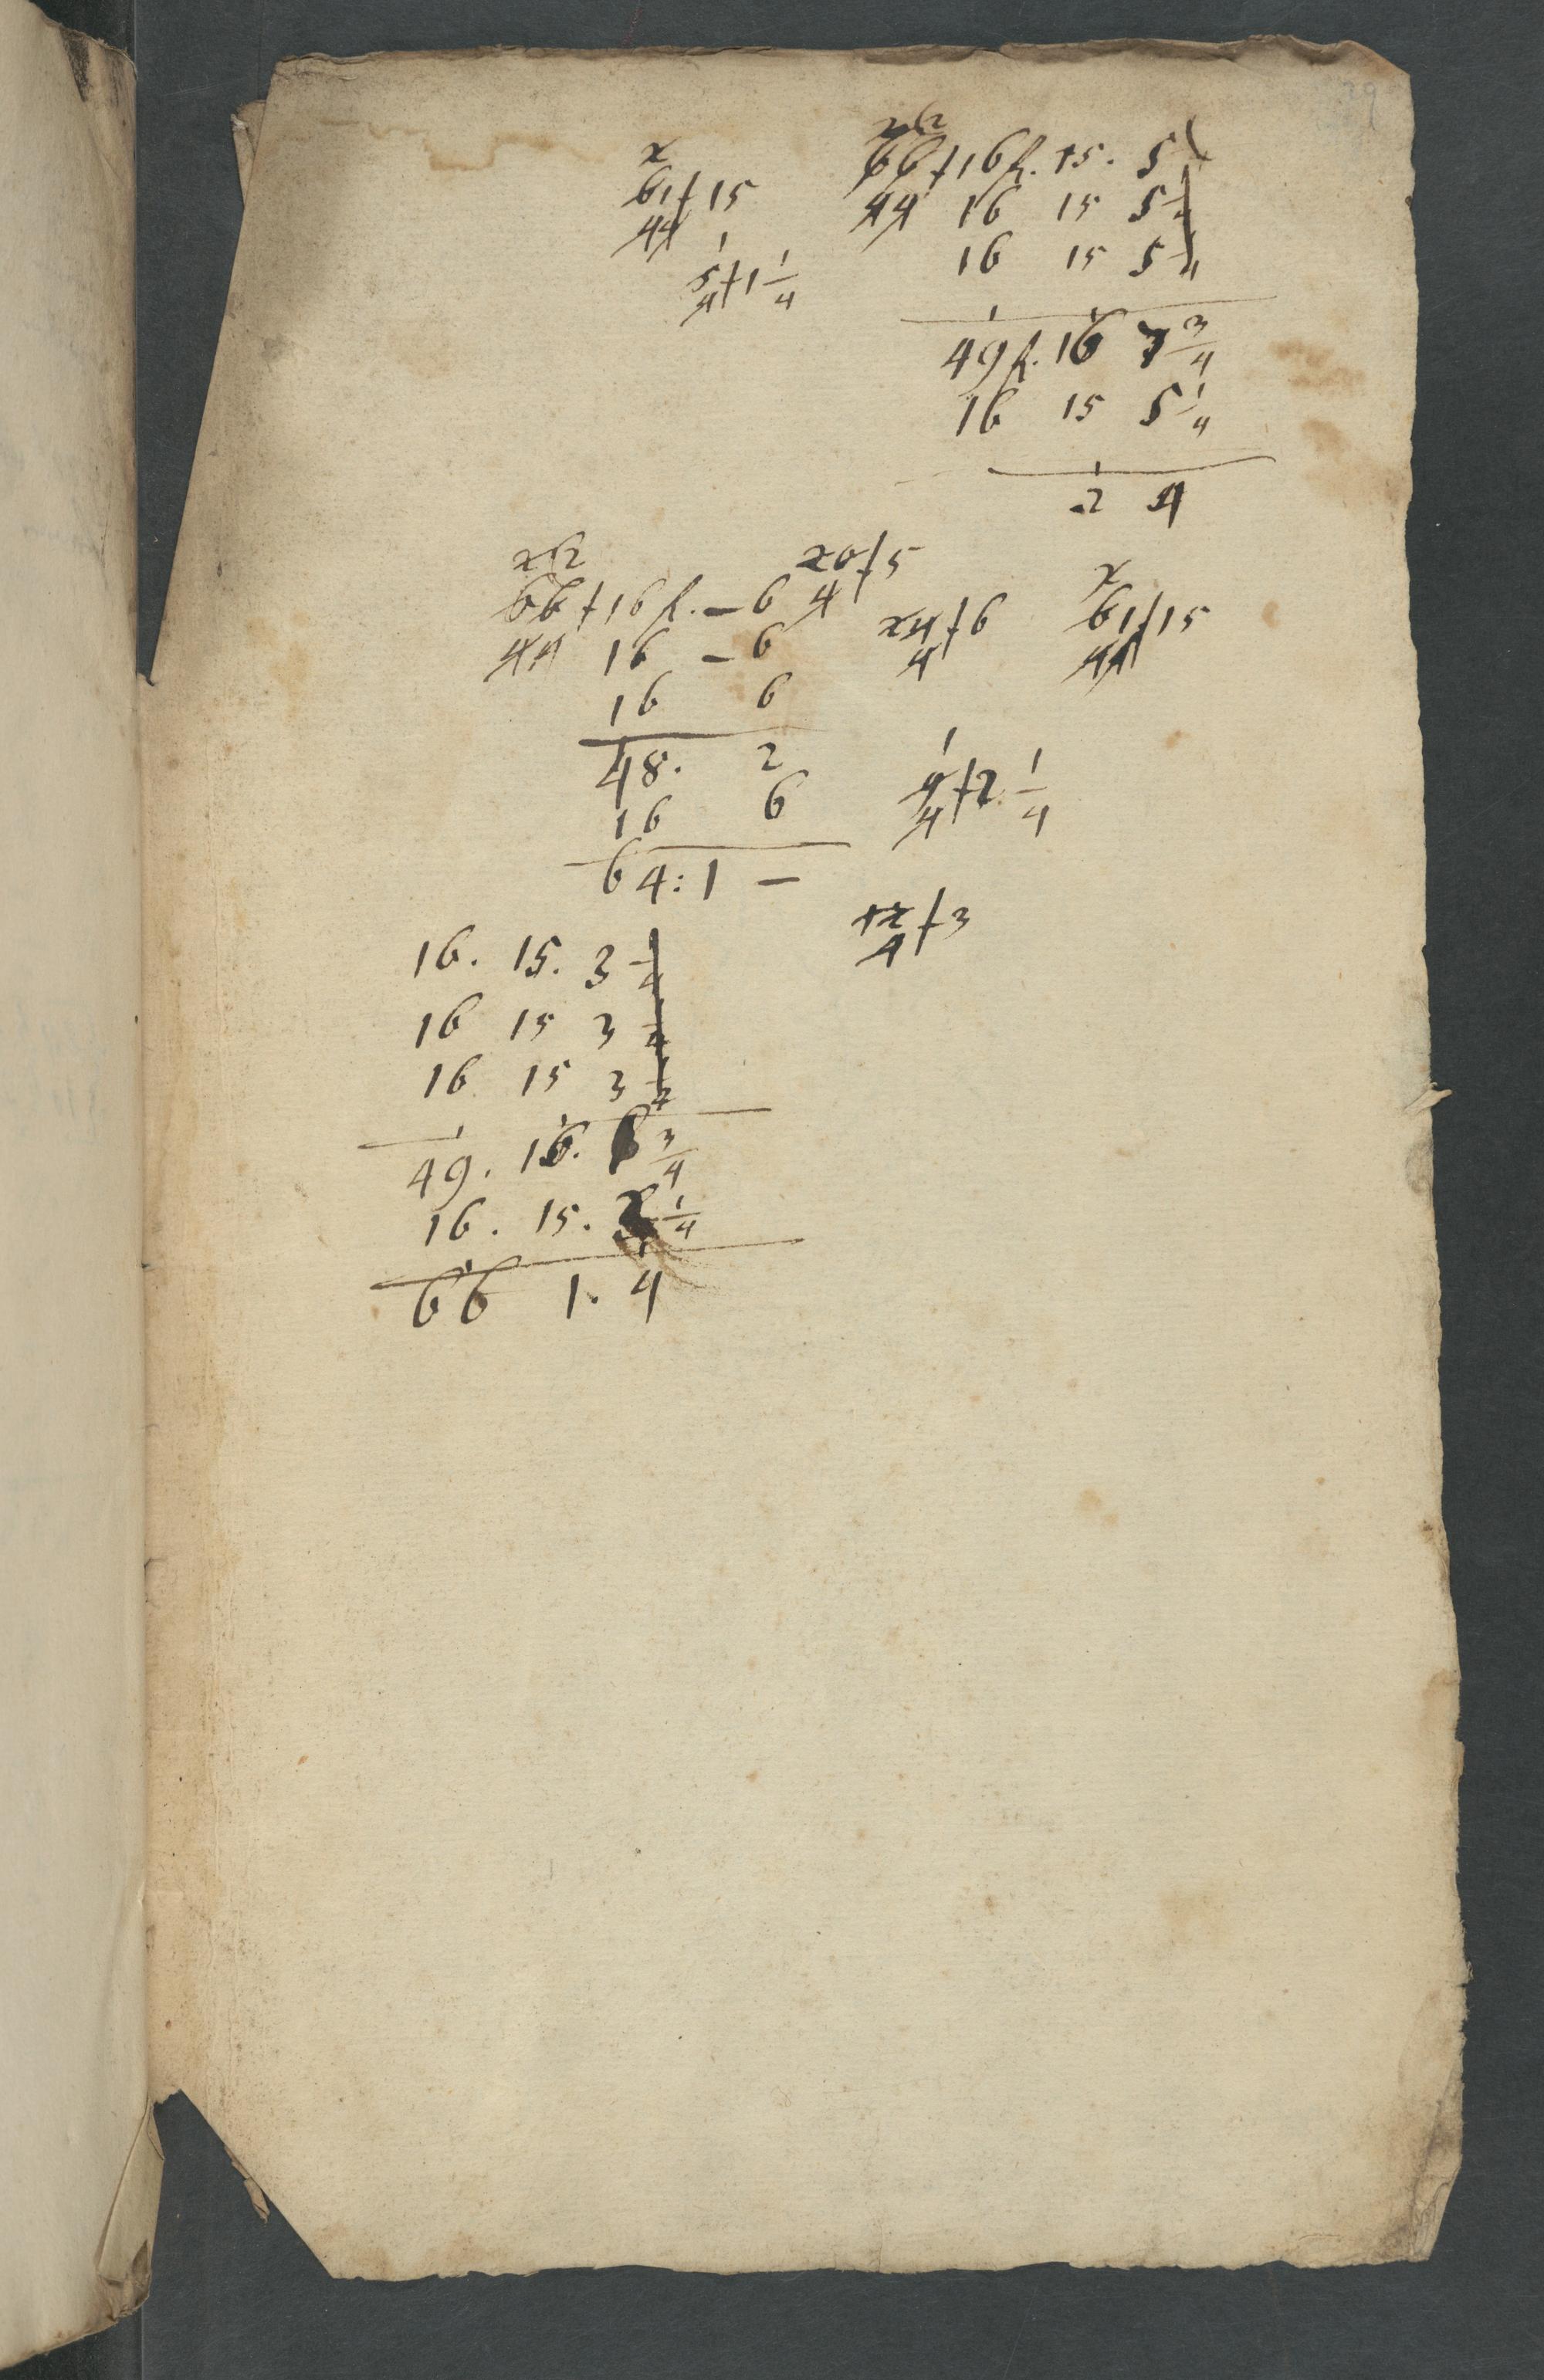 39
2
61 / 15
44
1
5 / 1 1/4
4
2 2
66 / 16 f. 15. 5
44 16 15 5 1/4
16 15 5 1/4
49 f. 16 7 3/4
16 15 5 1/4
2 4
2 2
66 / 16 f. – 6
44 16 – 6
16 6
48. 2
16 6
64: 1 –
20 / 5
4
24 / 6
4
2
61 / 15
44
1
9 / 2 1/4
4
12 / 3
4
16. 15. 3 1/4
16 15 3 1/4
16 15 3 1/4
49. 16. 3/4
16. 15. 1/4
66 1. 4